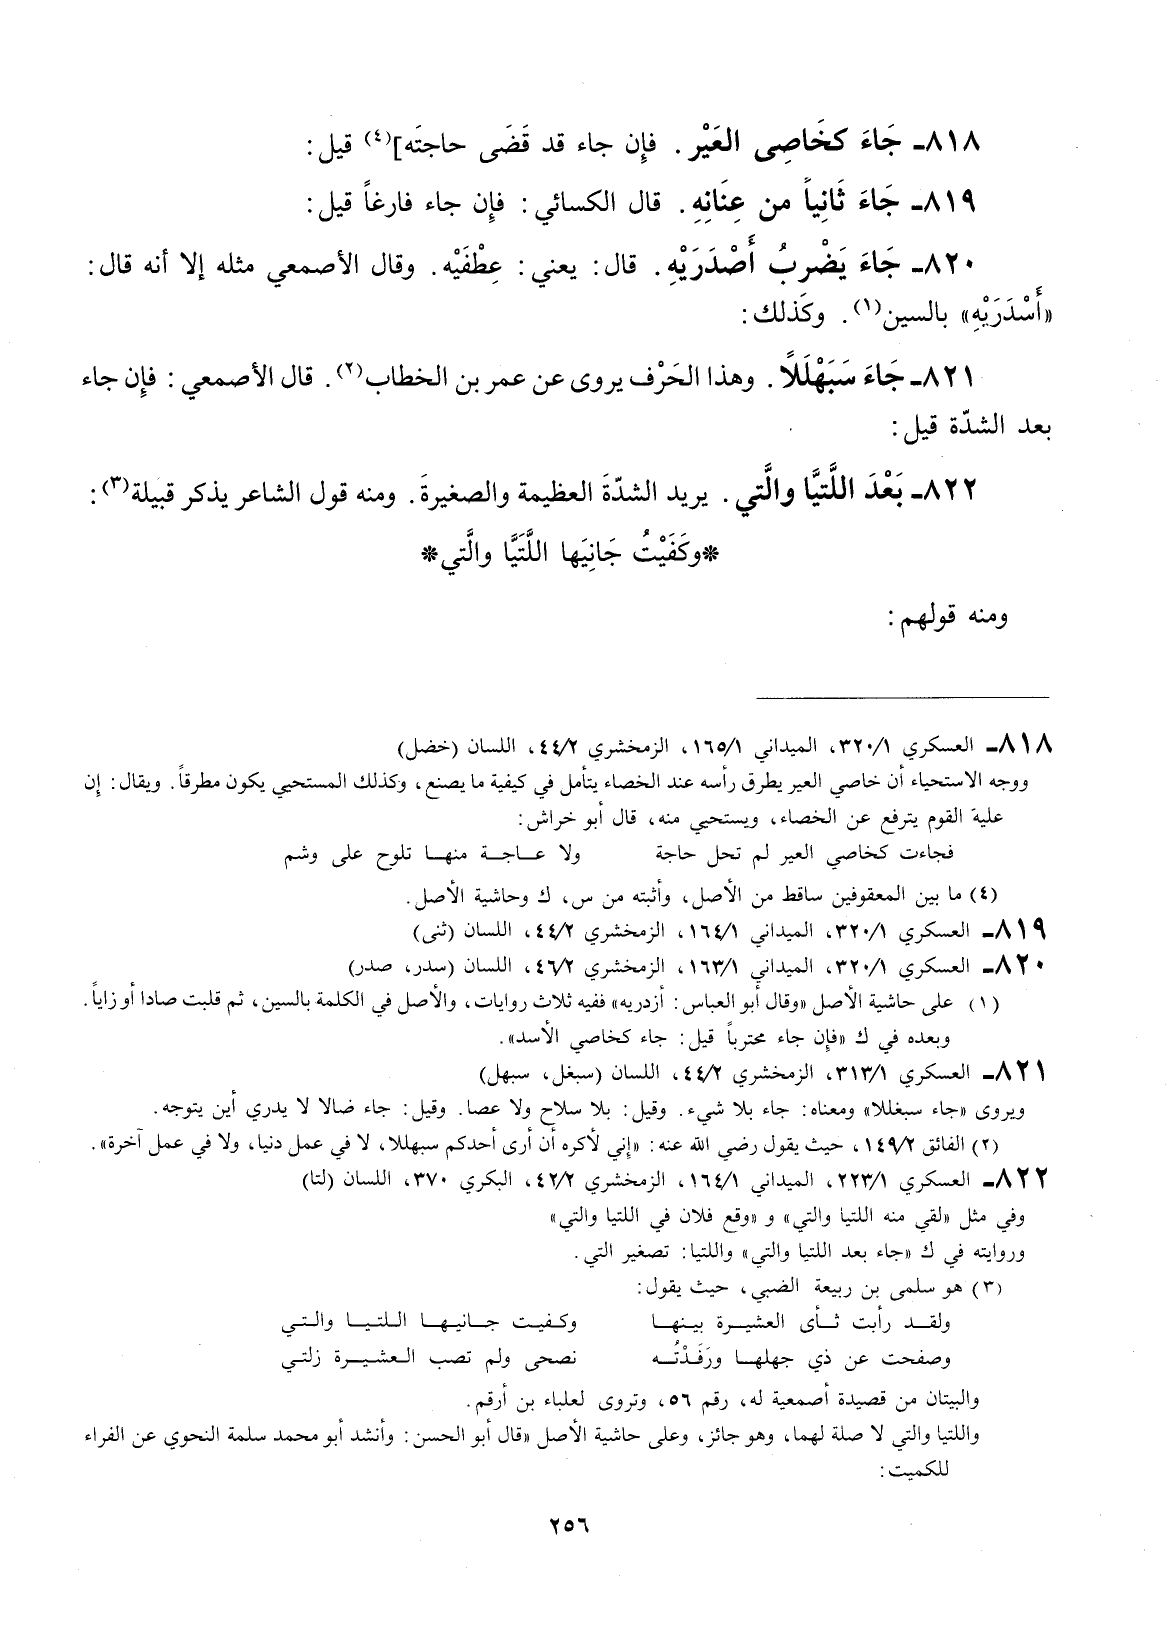 ٨١٨ـ جَاءَ كخَاصِى العَيْر. فإن جاء قد قَضَى حاجتَه](٤) قيل:
٨١٩ـ جَاءَ ثَانِياً من عِنَانِهِ. قال الكسائي: فإن جاء فارغاً قيل:
٨٢٠ـ جَاءَ يَضْربُ أَصْدَرَيْهِ. قال: يعني: عِطْفَيْه. وقال الأصمعي مثله إلا أنه قال:
«أَسْدَرَيْهِ» بالسين(١). وكَذلك:
٨٢١ـ جَاءَ سَبَهْلَلاً. وهذا الحَرْف يروى عن عمر بن الخطاب(٢). قال الأصمعي: فإن جاء
بعد الشدّة قيل:
٨٢٢ـ بَعْدَ اللَّتيَّا والَّتي. يريد الشدّةَ العظيمة والصغيرةَ. ومنه قول الشاعر يذكر قبيلة(٣):
*وكَفَيْتُ جَانِيَها اللَّتَيَّا والَّتي*
ومنه قولهم:
٨١٨ـ العسكري ٣٢٠/١، الميداني ١٦٥/١، الزمخشري ٤٤/٢، اللسان (خضل)
ووجه الاستحياء أن خاصي العير يطرق رأسه عند الخصاء يتأمل في كيفية ما يصنع، وكذلك المستحيي يكون مطرقاً. ويقال: إن
علية القوم يترفع عن الخصاء، ويستحيي منه، قال أبو خراش:
فجاءت كخاصي العير لم تحل حاجة ولا عـاجـة منهـا تلوح على وشم
(٤) ما بين المعقوفين ساقط من الأصل، وأثبته من س، ك وحاشية الأصل.
٨١٩ـ العسكري ٣٢٠/١، الميداني ١٦٤/١، الزمخشري ٤٤/٢، اللسان (ثنى)
٨٢٠ـ العسكري ٣٢٠/١، الميداني ١٦٣/١، الزمخشري ٤٦/٢، اللسان (سدر، صدر)
(١) على حاشية الأصل «وقال أبو العباس: أزدريه» ففيه ثلاث روايات، والأصل في الكلمة بالسين، ثم قلبت صادا أو زاياً.
وبعده في ك «فإن جاء محترباً قيل: جاء كخاصي الأسد».
٨٢١ـ العسكري ٣١٣/١، الزمخشري ٤٤/٢، اللسان (سبغل، سبهل)
ويروى «جاء سبغللا» ومعناه: جاء بلا شيء. وقيل: بلا سلاح ولا عصا. وقيل: جاء ضالا لا يدري أين يتوجه.
(٢) الفائق ١٤٩/٢، حيث يقول رضي الله عنه: «إني لأكره أن أرى أحدكم سبهللا، لا في عمل دنيا، ولا في عمل آخرة».
٨٢٢ـ العسكري ٢٢٣/١، الميداني ١٦٤/١، الزمخشري ٤٢/٢، البكري ٣٧٠، اللسان (لتا)
وفي مثل «لقي منه اللتيا والتي» و «وقع فلان في اللتيا والتي»
وروايته في ك «جاء بعد اللتيا والتي» واللتيا: تصغير التي.
(٣) هو سلمى بن ربيعة الضبي، حيث يقول:
ولقـد رأبت ثـأى العشيـرة بينهـا وكفيت جـانيهـا اللتيـا والتي
وصفحت عن ذي جهلهـا ورَفَدْتُـه نصحى ولم تصب العشيـرة زلتي
والبيتان من قصيدة أصمعية له، رقم ٥٦، وتروى لعلباء بن أرقم.
واللتيا والتي لا صلة لهما، وهو جائز، وعلى حاشية الأصل «قال أبو الحسن: وأنشد أبو محمد سلمة النحوي عن الفراء
للكميت:
٢٥٦